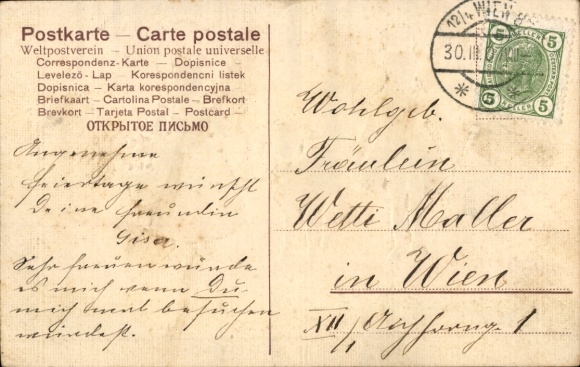 Postkarte — Carte postale
Weltpostverein — Union postale universelle
Correspondenz-Karte — Dopisnice -
Levelező - Lap — Korespondencni listek
Dopisnica - Karta korespondencyjna
Briefkaart - Cartolina Postale - Brefkort
Brevkort - Tarjeta Postal - Postcard -
ОТКРЫТОЕ ПИСЬМО
Angenehme
Feiertage wünscht
Deine Freundin
Gisa.
Sehr freuen würde
es mich wenn Du
mich mal besuchen
würdest.
12/1 WIEN
30.III.
5 HELLER 5
5 HELLER 5
Wohlgeb.
Fräulein
Wetti Maller
in Wien
XII/1 1